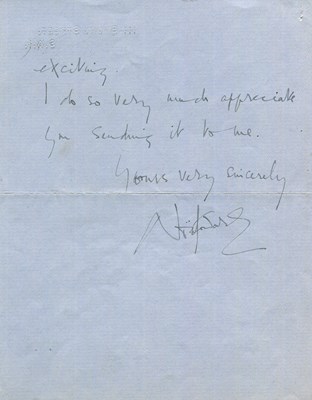 exciting.
I do so very much appreciate
you sending it to me.
Yours very sincerely